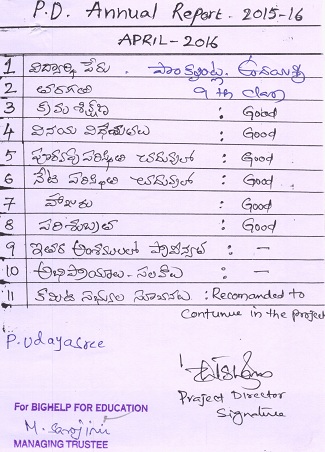 P.D. Annual Report. 2015-16
APRIL-2016
1 విద్యార్థి పేరు. పాలకుర్తి. ఉదయశ్రీ
2 తరగతి 9 th class
3 క్రమ శిక్షణ : Good
4 వినయ విధేయతలు : Good
5 పూర్వపు పరిస్థితి చదువులో : Good
6 నేటి పరిస్థితి చదువులో : Good
7 హాజరు : Good
8 పరిశుభ్రత : Good
9 ఇతర అంశములలో ప్రావీణ్యత : -
10 అభిప్రాయాలు - సలహాలు : -
11 కమిటి సభ్యుల సూచనలు : Recomanded to
Contunue in the project
P. Udayasree
Praject Director
Signature
For BIGHELP FOR EDUCATION
M. Sarojini
MANAGING TRUSTEE